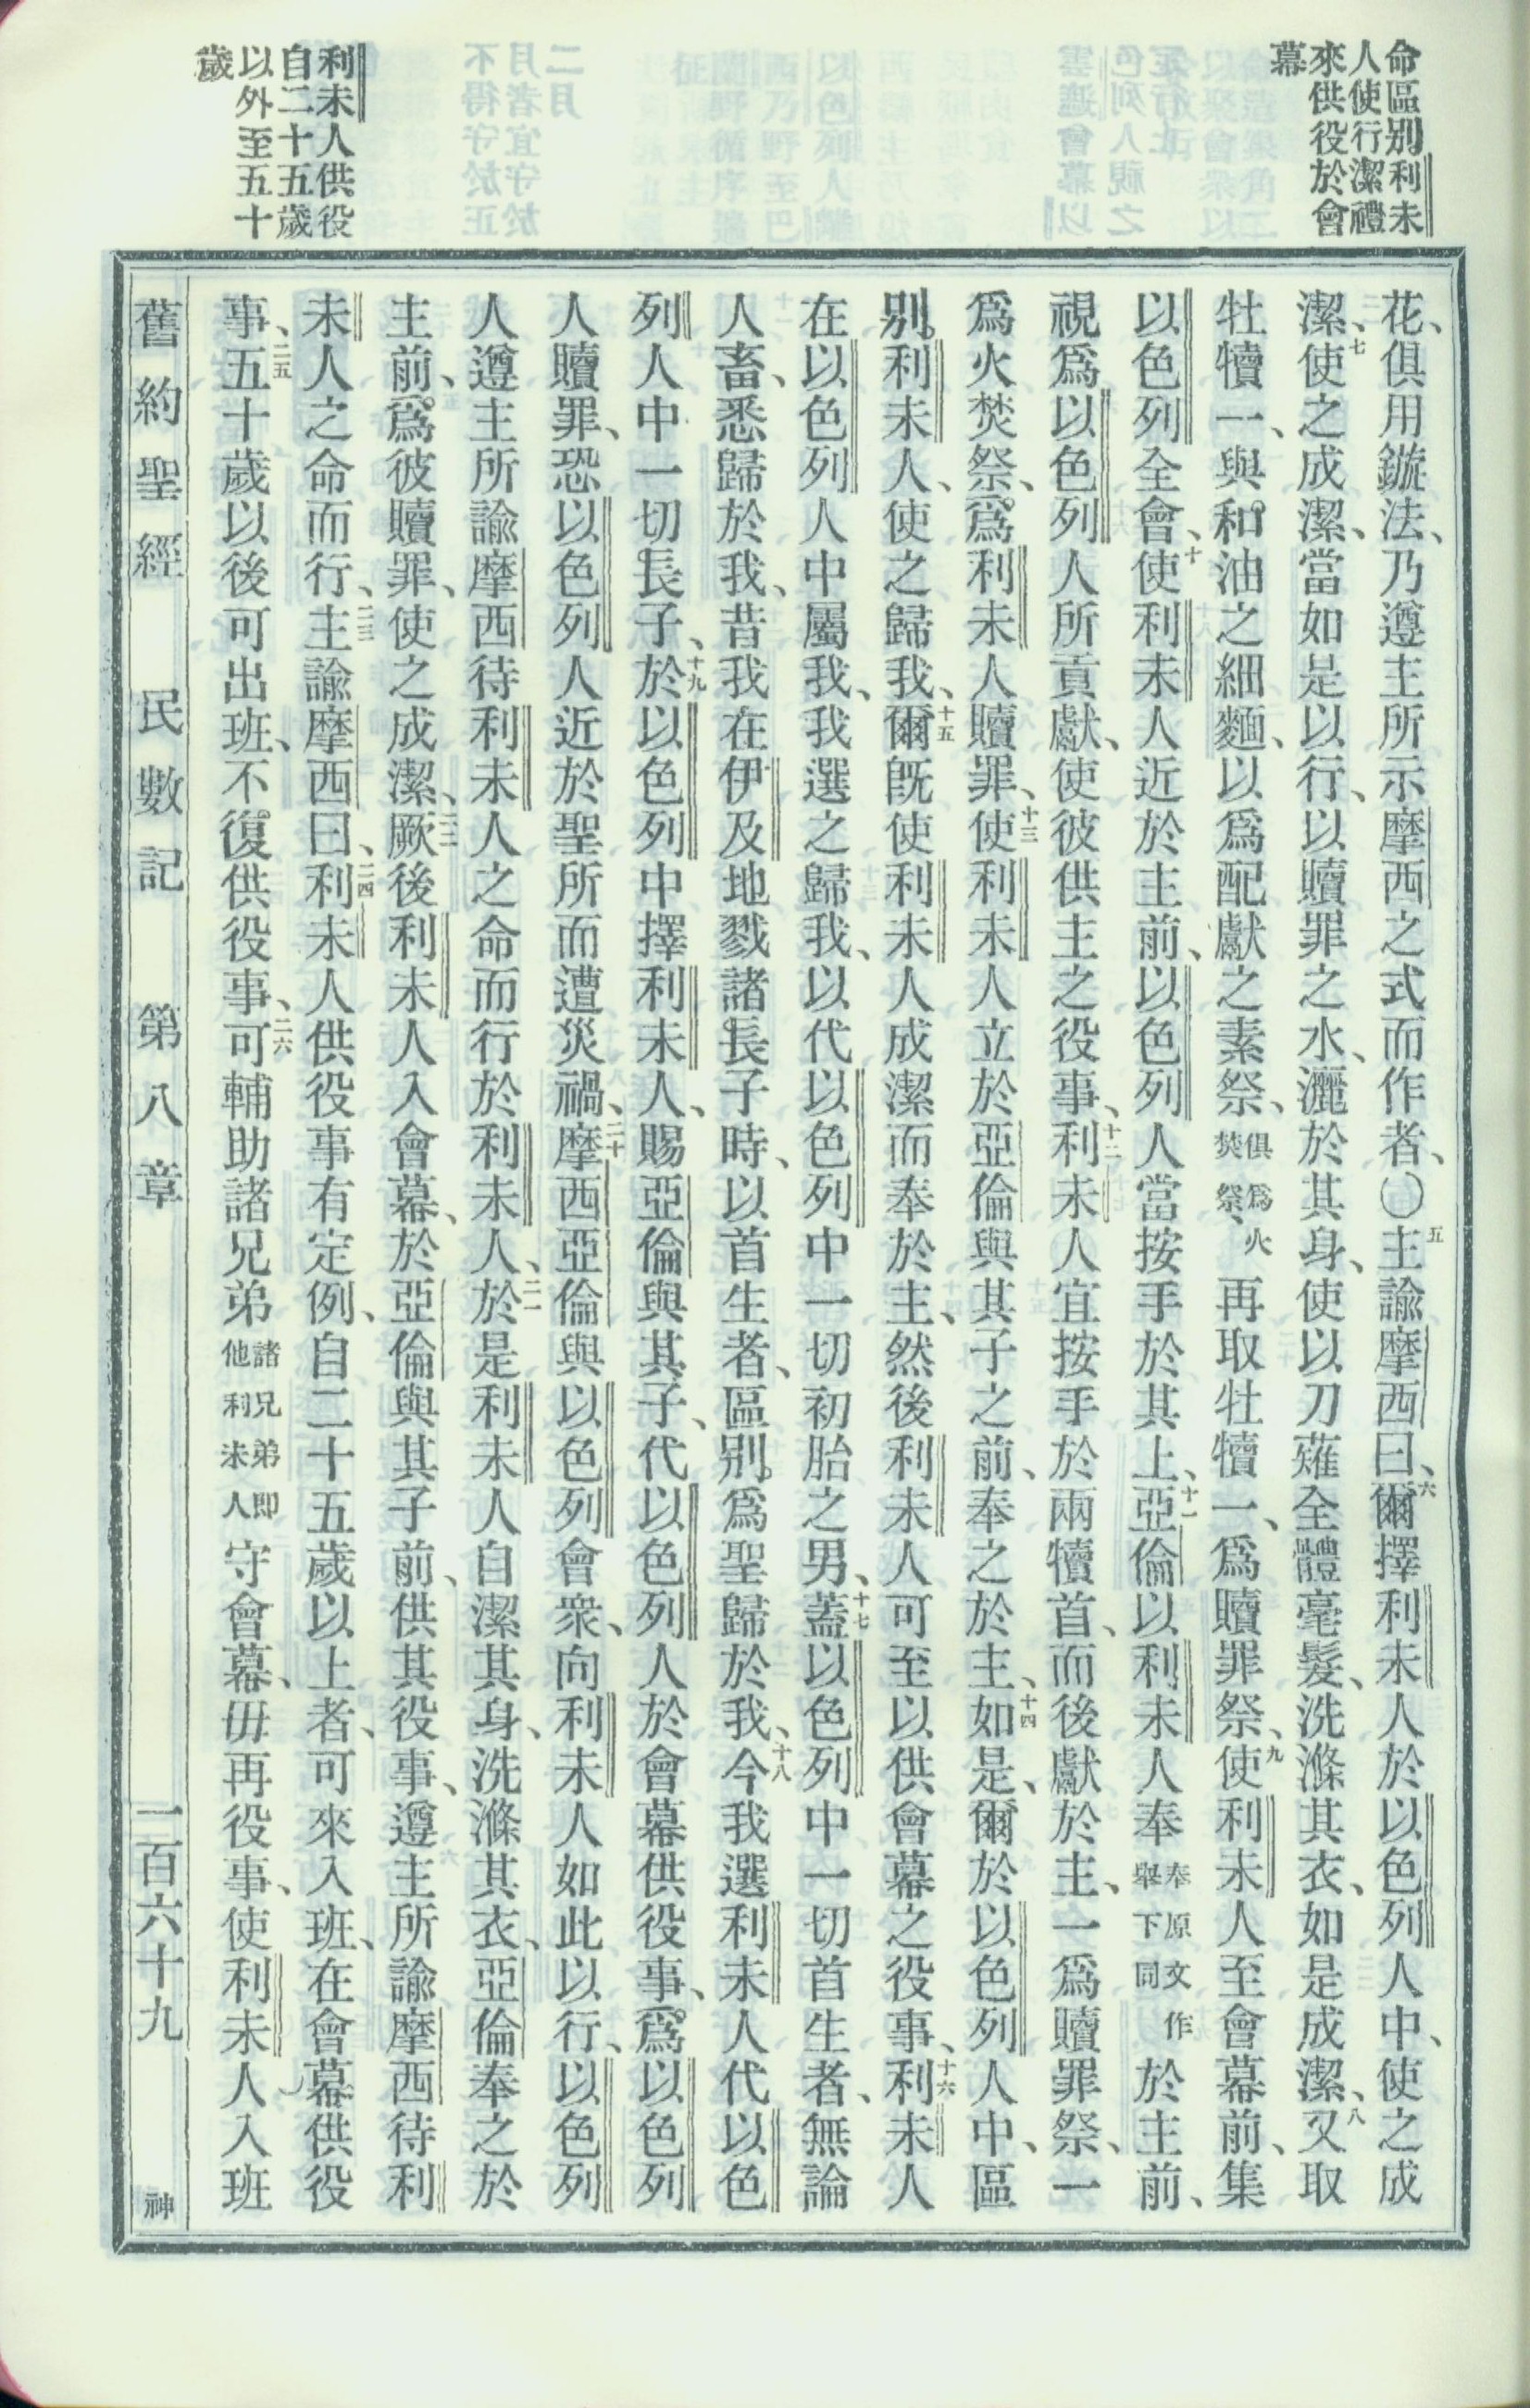 命區别利未
人使行潔禮
來供役於會
幕
利未人供役
自二十五歲
以外至五十
歲
花、俱用鏇法、乃遵主所示摩西之式而作者、〇五主諭摩西曰、六爾擇利未人於以色列人中、使之成
潔、七使之成潔、當如是以行、以贖罪之水、灑於其身、使以刀薙全體毫髮、洗滌其衣、如是成潔、八又取
牡犢一、與和油之細麵、以爲配獻之素祭、俱爲火焚祭、再取牡犢一、爲贖罪祭、九使利未人至會幕前、集
以色列全會、十使利未人近於主前、以色列人當按手於其上、十一亞倫以利未人奉奉原文作舉下同於主前、
視爲以色列人所貢獻、使彼供主之役事、十二利未人宜按手於兩犢首、而後獻於主、一爲贖罪祭、一
爲火焚祭、爲利未人贖罪、十三使利未人立於亞倫與其子之前、奉之於主、十四如是、爾於以色列人中、區
别利未人、使之歸我、十五爾既使利未人成潔而奉於主、然後利未人可至以供會幕之役事、十六利未人
在以色列人中屬我、我選之歸我、以代以色列中一切初胎之男、十七蓋以色列中一切首生者、無論
人畜、悉歸於我、昔我在伊及地戮諸長子時、以首生者、區别爲聖歸於我、十八今我選利未人代以色
列人中一切長子、十九於以色列中擇利未人、賜亞倫與其子、代以色列人於會幕供役事、爲以色列
人贖罪、恐以色列人近於聖所而遭災禍、二十摩西亞倫與以色列會衆、向利未人如此以行、以色列
人遵主所諭摩西待利未人之命而行於利未人、二一於是利未人自潔其身、洗滌其衣、亞倫奉之於
主前、爲彼贖罪、使之成潔、二二厥後利未人入會幕、於亞倫與其子前、供其役事、遵主所諭摩西待利
未人之命而行、二三主諭摩西曰、二四利未人供役事有定例、自二十五歲以上者、可來入班、在會幕供役
事、二五五十歲以後可出班、不復供役事、二六可輔助諸兄弟諸兄弟即他利未人守會幕、毋再役事、使利未人入班
舊約聖經　民數記　第八章　一百六十九　神